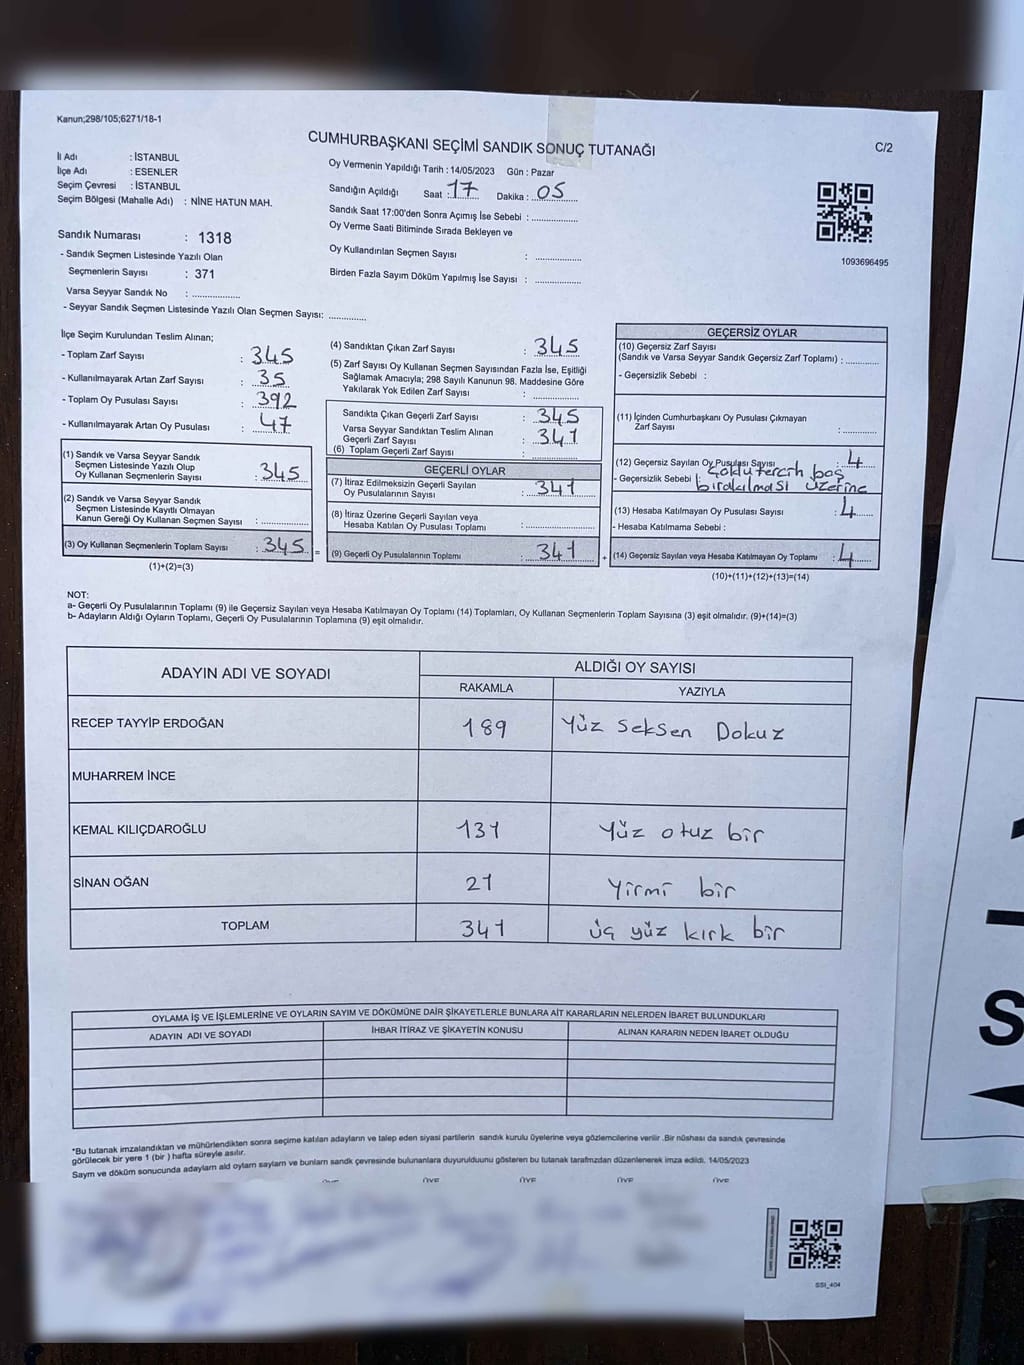 Kanun;298/105;6271/18-1
CUMHURBAŞKANI SEÇİMİ SANDIK SONUÇ TUTANAĞI
C/2
İl Adı : İSTANBUL
İlçe Adı : ESENLER
Seçim Çevresi : İSTANBUL
Seçim Bölgesi (Mahalle Adı) : NİNE HATUN MAH.
Oy Vermenin Yapıldığı Tarih : 14/05/2023 Gün : Pazar
Sandığın Açıldığı Saat : 17 Dakika : 05
Sandık Saat 17:00'den Sonra Açımış İse Sebebi :
Oy Verme Saati Bitiminde Sırada Bekleyen ve
Oy Kullandırılan Seçmen Sayısı :
Birden Fazla Sayım Döküm Yapılmış İse Sayısı :
1093696495
Sandık Numarası : 1318
- Sandık Seçmen Listesinde Yazılı Olan
Seçmenlerin Sayısı : 371
Varsa Seyyar Sandık No :
- Seyyar Sandık Seçmen Listesinde Yazılı Olan Seçmen Sayısı:
İlçe Seçim Kurulundan Teslim Alınan;
- Toplam Zarf Sayısı : 345
- Kullanılmayarak Artan Zarf Sayısı : 35
- Toplam Oy Pusulası Sayısı : 392
- Kullanılmayarak Artan Oy Pusulası : 47
(1) Sandık ve Varsa Seyyar Sandık
Seçmen Listesinde Yazılı Olup
Oy Kullanan Seçmenlerin Sayısı : 345
(2) Sandık ve Varsa Seyyar Sandık
Seçmen Listesinde Kayıtlı Olmayan
Kanun Gereği Oy Kullanan Seçmen Sayısı :
(3) Oy Kullanan Seçmenlerin Toplam Sayısı : 345 =
(1)+(2)=(3)
(4) Sandıktan Çıkan Zarf Sayısı : 345
(5) Zarf Sayısı Oy Kullanan Seçmen Sayısından Fazla İse, Eşitliği
Sağlamak Amacıyla; 298 Sayılı Kanunun 98. Maddesine Göre
Yakılarak Yok Edilen Zarf Sayısı :
Sandıkta Çıkan Geçerli Zarf Sayısı : 345
Varsa Seyyar Sandıktan Teslim Alınan
Geçerli Zarf Sayısı : 341
(6) Toplam Geçerli Zarf Sayısı :
GEÇERLİ OYLAR
(7) İtiraz Edilmeksizin Geçerli Sayılan
Oy Pusulalarının Sayısı : 341
(8) İtiraz Üzerine Geçerli Sayılan veya
Hesaba Katılan Oy Pusulası Toplamı :
(9) Geçerli Oy Pusulalarının Toplamı : 341 +
GEÇERSİZ OYLAR
(10) Geçersiz Zarf Sayısı
(Sandık ve Varsa Seyyar Sandık Geçersiz Zarf Toplamı) :
- Geçersizlik Sebebi :
(11) İçinden Cumhurbaşkanı Oy Pusulası Çıkmayan
Zarf Sayısı :
(12) Geçersiz Sayılan Oy Pusulası Sayısı : 4
- Geçersizlik Sebebi : Çoklu tercih boş
bırakılması üzerine
(13) Hesaba Katılmayan Oy Pusulası Sayısı : 4
- Hesaba Katılmama Sebebi :
(14) Geçersiz Sayılan veya Hesaba Katılmayan Oy Toplamı : 4
(10)+(11)+(12)+(13)=(14)
NOT:
a- Geçerli Oy Pusulalarının Toplamı (9) ile Geçersiz Sayılan veya Hesaba Katılmayan Oy Toplamı (14) Toplamları, Oy Kullanan Seçmenlerin Toplam Sayısına (3) eşit olmalıdır. (9)+(14)=(3)
b- Adayların Aldığı Oyların Toplamı, Geçerli Oy Pusulalarının Toplamına (9) eşit olmalıdır.
ADAYIN ADI VE SOYADI
ALDIĞI OY SAYISI
RAKAMLA YAZIYLA
RECEP TAYYİP ERDOĞAN 189 Yüz Seksen Dokuz
MUHARREM İNCE
KEMAL KILIÇDAROĞLU 131 Yüz otuz bir
SİNAN OĞAN 21 Yirmi bir
TOPLAM 341 üç yüz kırk bir
OYLAMA İŞ VE İŞLEMLERİNE VE OYLARIN SAYIM VE DÖKÜMÜNE DAİR ŞİKAYETLERLE BUNLARA AİT KARARLARIN NELERDEN İBARET BULUNDUKLARI
ADAYIN ADI VE SOYADI İHBAR İTİRAZ VE ŞİKAYETİN KONUSU ALINAN KARARIN NEDEN İBARET OLDUĞU
*Bu tutanak imzalandıktan ve mühürlendikten sonra seçime katılan adayların ve talep eden siyasi partilerin sandık kurulu üyelerine veya gözlemcilerine verilir .Bir nüshası da sandık çevresinde
görülecek bir yere 1 (bir ) hafta süreyle asılır.
Sayım ve döküm sonucunda adayların aldı oyların sayıları ve bunların sandık çevresinde bulunanlara duyurulduunu gösteren bu tutanak tarafmzdan düzenlenerek imza edildi. 14/05/2023
ÜYE ÜYE ÜYE ÜYE ÜYE
SSI_404
S